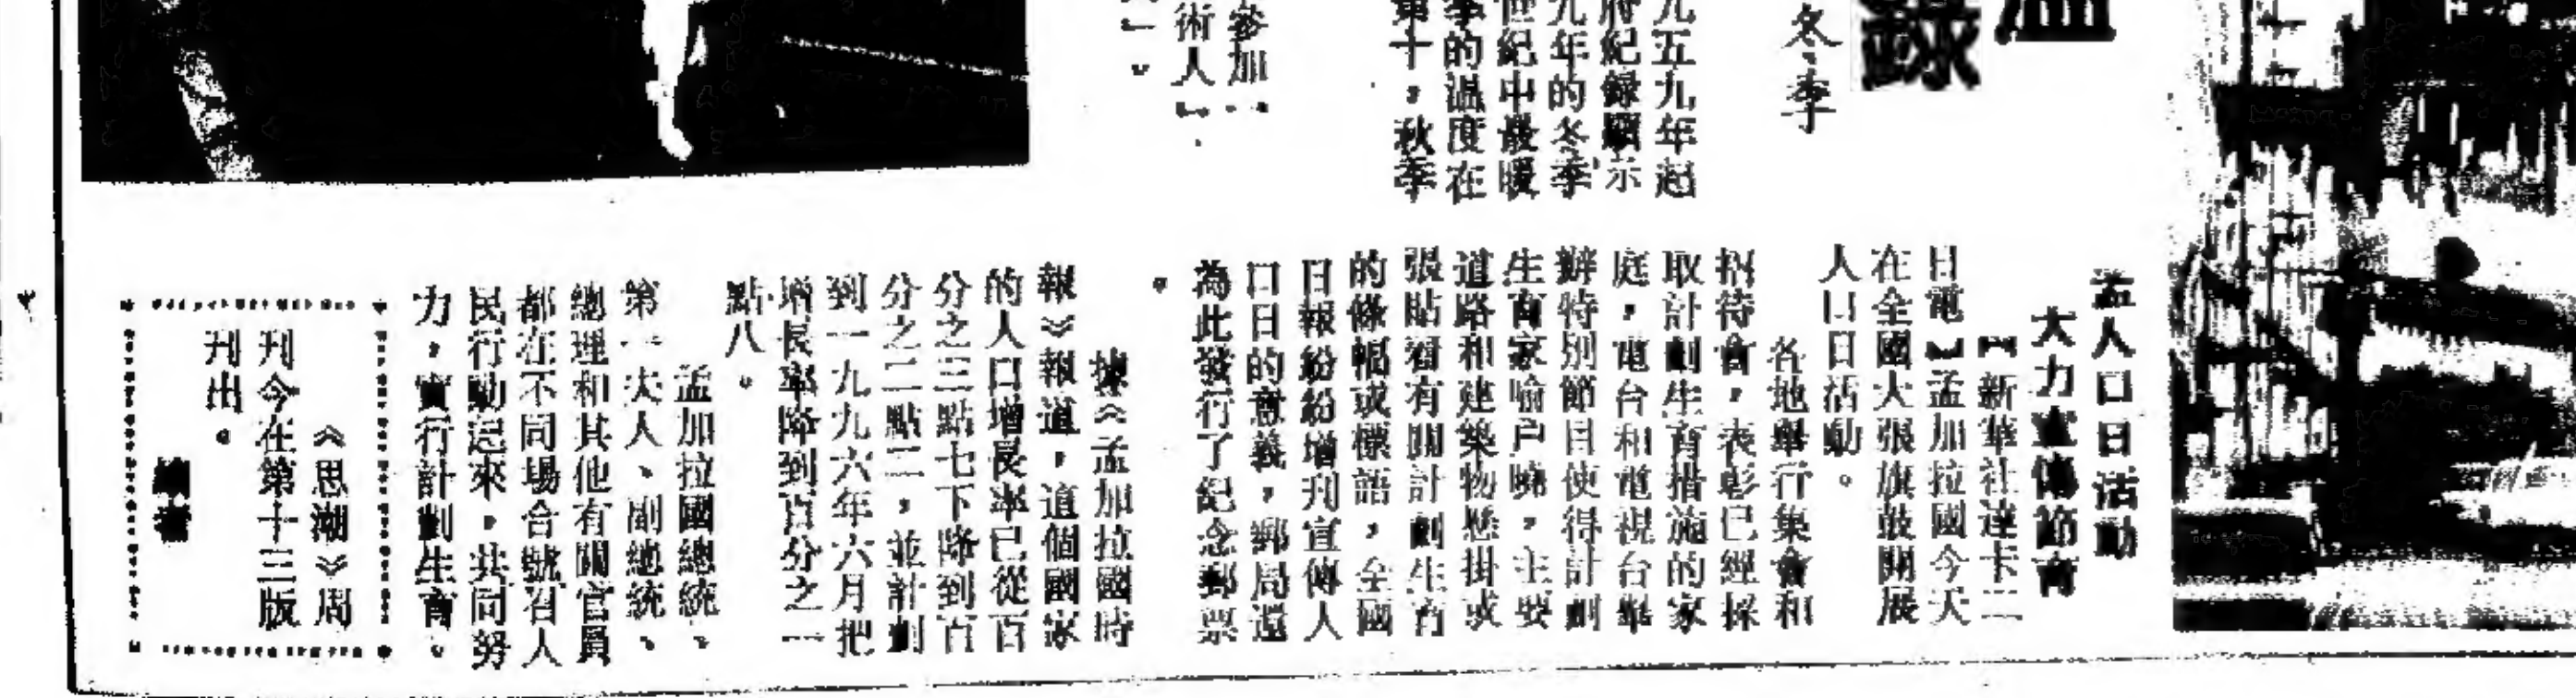 錄
冬季
九五九年起
府紀錄顯示
九年的冬季
世紀中最暖
季的溫度在
第十，秋季
參加
術人
孟人口日活動
大力宣傳節育
【新華社達卡二
日電】孟加拉國今天
在全國大張旗鼓開展
人口日活動。
各地舉行集會和
招待會，表彰已經採
取計劃生育措施的家
庭，電台和電視台舉
辦特別節目使得計劃
生育家喻戶曉，主要
道路和建築物懸掛或
張貼着有關計劃生育
的條幅或標語，全國
日報紛紛增刊宣傳人
口日的意義，郵局還
為此發行了紀念郵票
。
據《孟加拉國時
報》報道，這個國家
的人口增長率已從百
分之三點七下降到百
分之二點二，並計劃
到一九九六年六月把
增長率降到百分之一
點八。
孟加拉國總統、
第一夫人、副總統、
總理和其他有關官員
都在不同場合號召人
民行動起來，共同努
力，實行計劃生育。
《思潮》周
刊今在第十三版
刊出。
編者